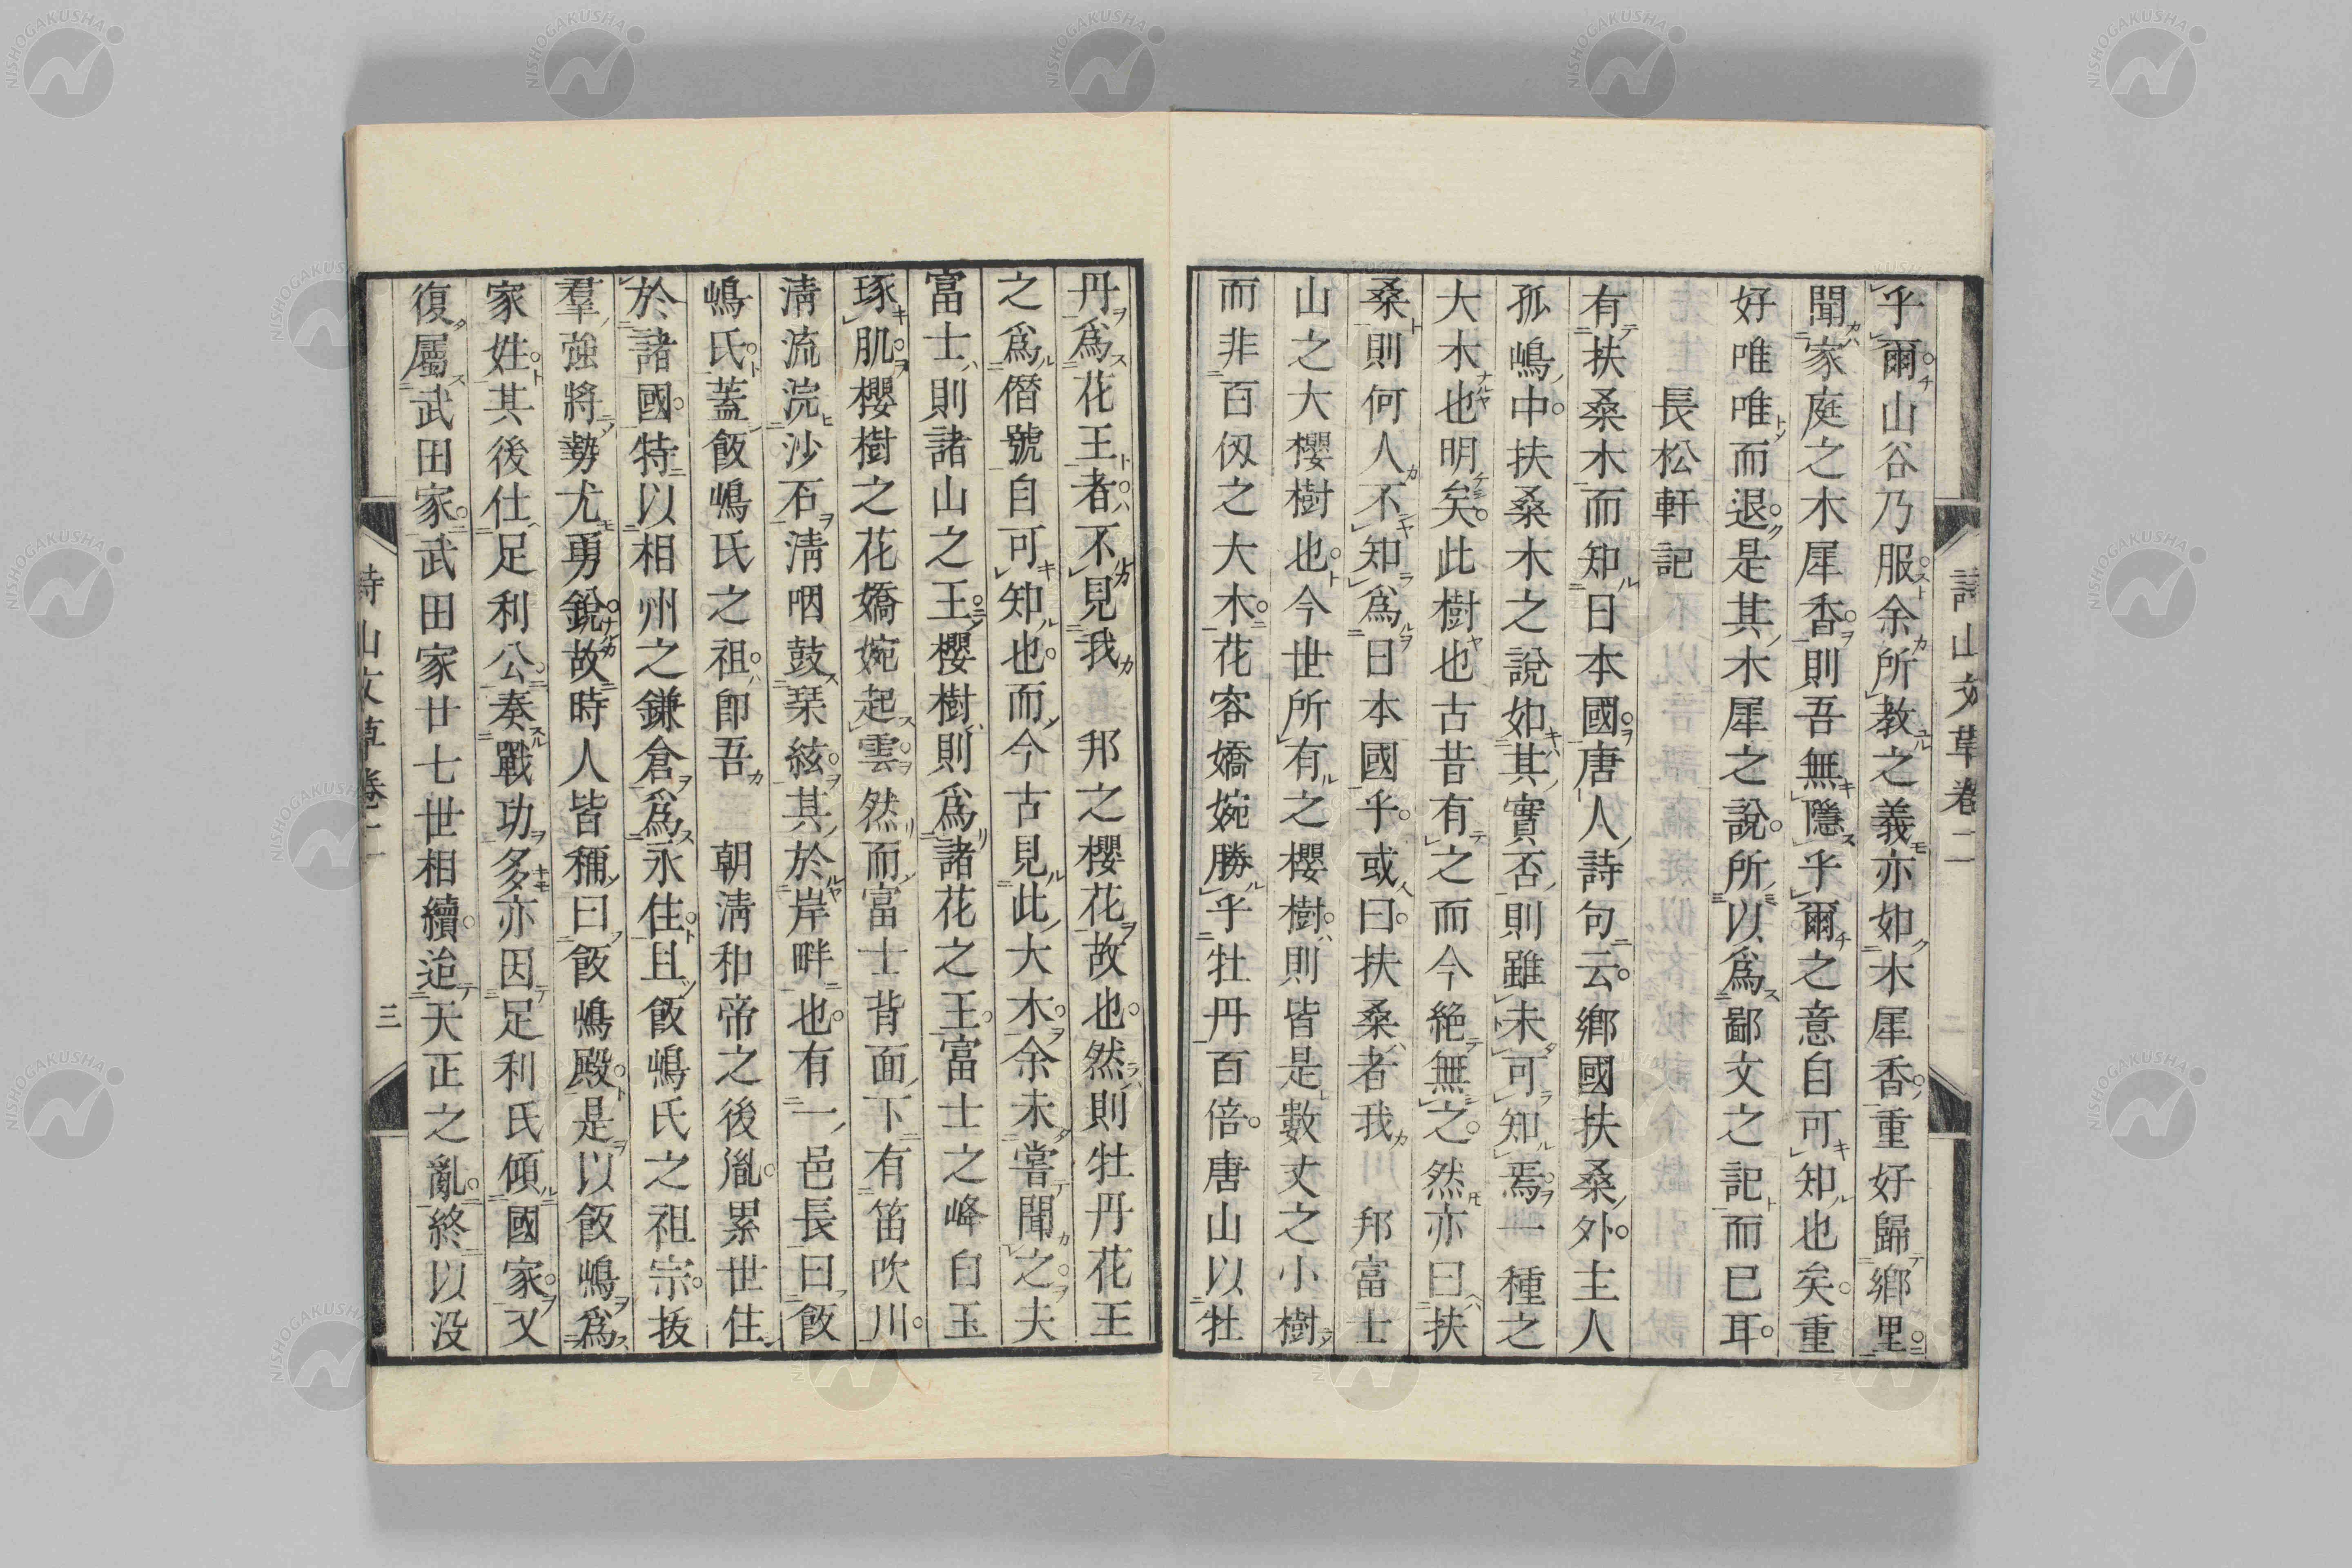 乎爾山谷乃服余所教之義亦如木犀香重好歸鄉里
聞家庭之木犀香則吾無隱乎爾之意自可知也矣重
好唯唯而退是其木犀之說所以爲鄙文之記而已耳
長松軒記
有扶桑木而知日本國唐人詩句云鄉國扶桑外主人
孤嶋中扶桑木之說如其實否則雖未可知焉一種之
大木也明矣此樹也古昔有之而今絶無之然亦曰扶
桑則何人不知爲日本國乎或曰扶桑者我 邦富士
山之大櫻樹也今世所有之櫻樹則皆是數丈之小樹
而非百仭之大木花容嬌婉勝乎牡丹百倍唐山以牡
丹爲花王者不見我 邦之櫻花故也然則牡丹花王
之爲僭號自可知也而今古見此大木余未嘗聞之夫
富士則諸山之王櫻樹則爲諸花之王富士之峰白玉
琢肌櫻樹之花嬌婉起雲然而富士背面下有笛吹川
淸流浣沙石淸咽鼓琹絃其於岸畔也有一邑長曰飯
嶋氏蓋飯嶋氏之祖卽吾 朝淸和帝之後胤累世住
於諸國特以相州之鎌倉爲永住且飯嶋氏之祖宗拔
羣強將勢尤勇銳故時人皆稱曰飯嶋殿是以飯嶋爲
家姓其後仕足利公奏戰功多亦因足利氏傾國家又
復屬武田家武田家廿七世相續迨天正之亂終以没
詩山文草卷二
詩山文草卷二 三
NISHOGAKUSHA